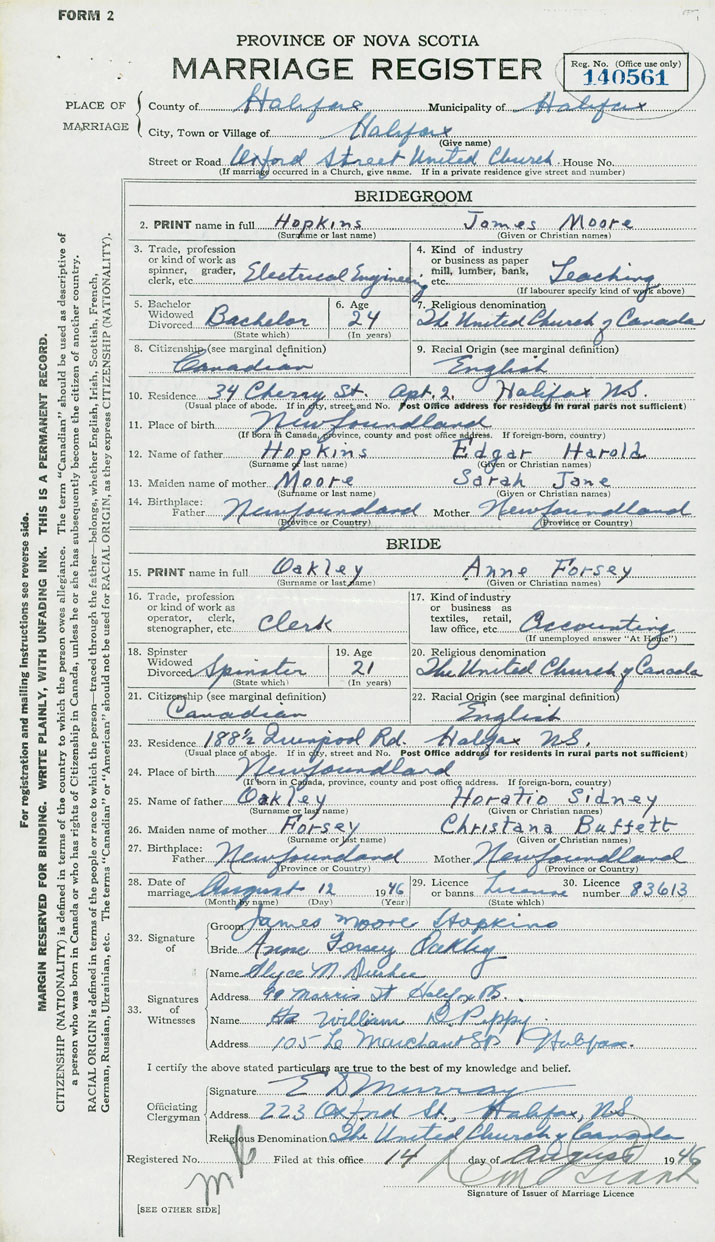 FORM 2
PROVINCE OF NOVA SCOTIA
MARRIAGE REGISTER
Reg. No. (Office use only)
140561
PLACE OF MARRIAGE
County of Halifax Municipality of Halifax
City, Town or Village of Halifax
(Give name)
Street or Road Oxford Street United Church House No.
(If marriage occurred in a Church, give name. If in a private residence give street and number)
BRIDEGROOM
2. PRINT name in full Hopkins James Moore
(Surname or last name) (Given or Christian names)
3. Trade, profession or kind of work as spinner, grader, clerk, etc. Electrical Engineering
4. Kind of industry or business as paper mill, lumber, bank, etc. Teaching
(If labourer specify kind of work above)
5. Bachelor Widowed Divorced Bachelor
(State which)
6. Age 24
(In years)
7. Religious denomination
The United Church of Canada
8. Citizenship (see marginal definition)
Canadian
9. Racial Origin (see marginal definition)
English
10. Residence 34 Cherry St. Apt. 2. Halifax N.S.
(Usual place of abode. If in city, street and No. Post Office address for residents in rural parts not sufficient)
11. Place of birth Newfoundland
(If born in Canada, province, county and post office address. If foreign-born, country)
12. Name of father Hopkins Edgar Harold
(Surname or last name) (Given or Christian names)
13. Maiden name of mother Moore Sarah Jane
(Surname or last name) (Given or Christian names)
14. Birthplace: Father Newfoundland Mother Newfoundland
(Province or Country) (Province or Country)
BRIDE
15. PRINT name in full Oakley Anne Forsey
(Surname or last name) (Given or Christian names)
16. Trade, profession or kind of work as operator, clerk, stenographer, etc. Clerk
17. Kind of industry or business as textiles, retail, law office, etc. Accounting
(If unemployed answer "At Home")
18. Spinster Widowed Divorced Spinster
(State which)
19. Age 21
(In years)
20. Religious denomination
The United Church of Canada
21. Citizenship (see marginal definition)
Canadian
22. Racial Origin (see marginal definition)
English
23. Residence 188½ Liverpool Rd. Halifax N.S.
(Usual place of abode. If in city, street and No. Post Office address for residents in rural parts not sufficient)
24. Place of birth Newfoundland
(If born in Canada, province, county and post office address. If foreign-born, country)
25. Name of father Oakley Horatio Sidney
(Surname or last name) (Given or Christian names)
26. Maiden name of mother Forsey Christana Buffett
(Surname or last name) (Given or Christian names)
27. Birthplace: Father Newfoundland Mother Newfoundland
(Province or Country) (Province or Country)
28. Date of marriage August 12 1946
(Month by name) (Day) (Year)
29. Licence or banns License
(State which)
30. Licence number 83613
32. Signature of
Groom James Moore Hopkins
Bride Anne Forsey Oakley
33. Signatures of Witnesses
Name Alyce M.
Address 99 Morris St Halifax
Name William D. Pippy
Address 105 Le Marchant St Halifax.
I certify the above stated particulars are true to the best of my knowledge and belief.
Officiating Clergyman
Signature E D Murray
Address 223 Oxford St., Halifax, N.S.
Religious Denomination The United Church of Canada
Registered No. Filed at this office 14 day of August 1946
Signature of Issuer of Marriage Licence
[SEE OTHER SIDE]
For registration and mailing instructions see reverse side.
MARGIN RESERVED FOR BINDING. WRITE PLAINLY, WITH UNFADING INK. THIS IS A PERMANENT RECORD.
CITIZENSHIP (NATIONALITY) is defined in terms of the country to which the person owes allegiance. The term "Canadian" should be used as descriptive of
a person who was born in Canada or who has rights of Citizenship in Canada, unless he or she has subsequently become the citizen of another country.
RACIAL ORIGIN is defined in terms of the people or race to which the person—traced through the father—belongs, whether English, Irish, Scottish, French,
German, Russian, Ukrainian, etc. The terms "Canadian" or "American" should not be used for RACIAL ORIGIN, as they express CITIZENSHIP (NATIONALITY).